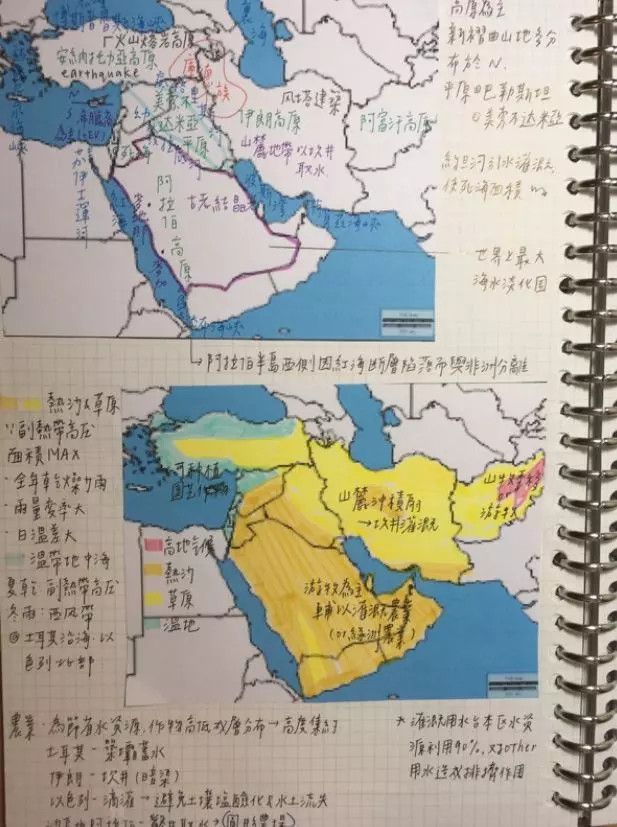 裏海
火山熔岩高原
安納托力亞高原
earthquake
高原為主
新褶曲山地多分
布於N.
平原巴勒斯坦
美索不達米亞
風塔建築
伊朗高原
阿富汗高原
山麓地帶以坎井
取水
死海
美索
不達米亞
平原
約旦河引水灌溉
使死海面積
蘇伊士運河
紅海
阿拉伯高原
古老結晶
波斯灣
麥地那
麥加
世界上最大
海水淡化國
→阿拉伯半島西側因紅海斷層陷落而與非洲分離
熱沙&草原
∵副熱帶高壓
面積MAX
·全年乾燥少雨
·雨量變率大
·日溫差大
溫帶地中海
夏乾:副熱帶高壓
冬雨:西風帶
@土耳其沿海、以
色列北部
可種植
園藝作物
山麓沖積扇
→坎井灌溉
山牧季移
or
游牧
高地氣候
熱沙
草原
溫地
游牧為主
輔以灌溉農業
(or綠洲農業)
農業·為節省水資源,作物高低成層分布→高度集約
土耳其-築壩蓄水
伊朗-坎井(暗渠)
以色列-滴灌→避免土壤鹽鹼化&水土流失
沙烏地阿拉伯-鑿井取水→圓形農場
*灌溉用水佔本區水資
源利用90%,對other
用水造成排擠作用